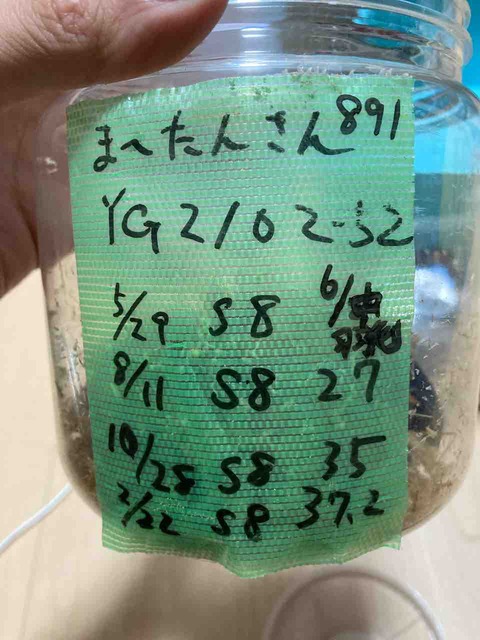 ま〜たんさん 891
YG 2102-32
5/29 S8 6/中
8/11 S8 27
10/28 S8 35
2/22 S8 37.2